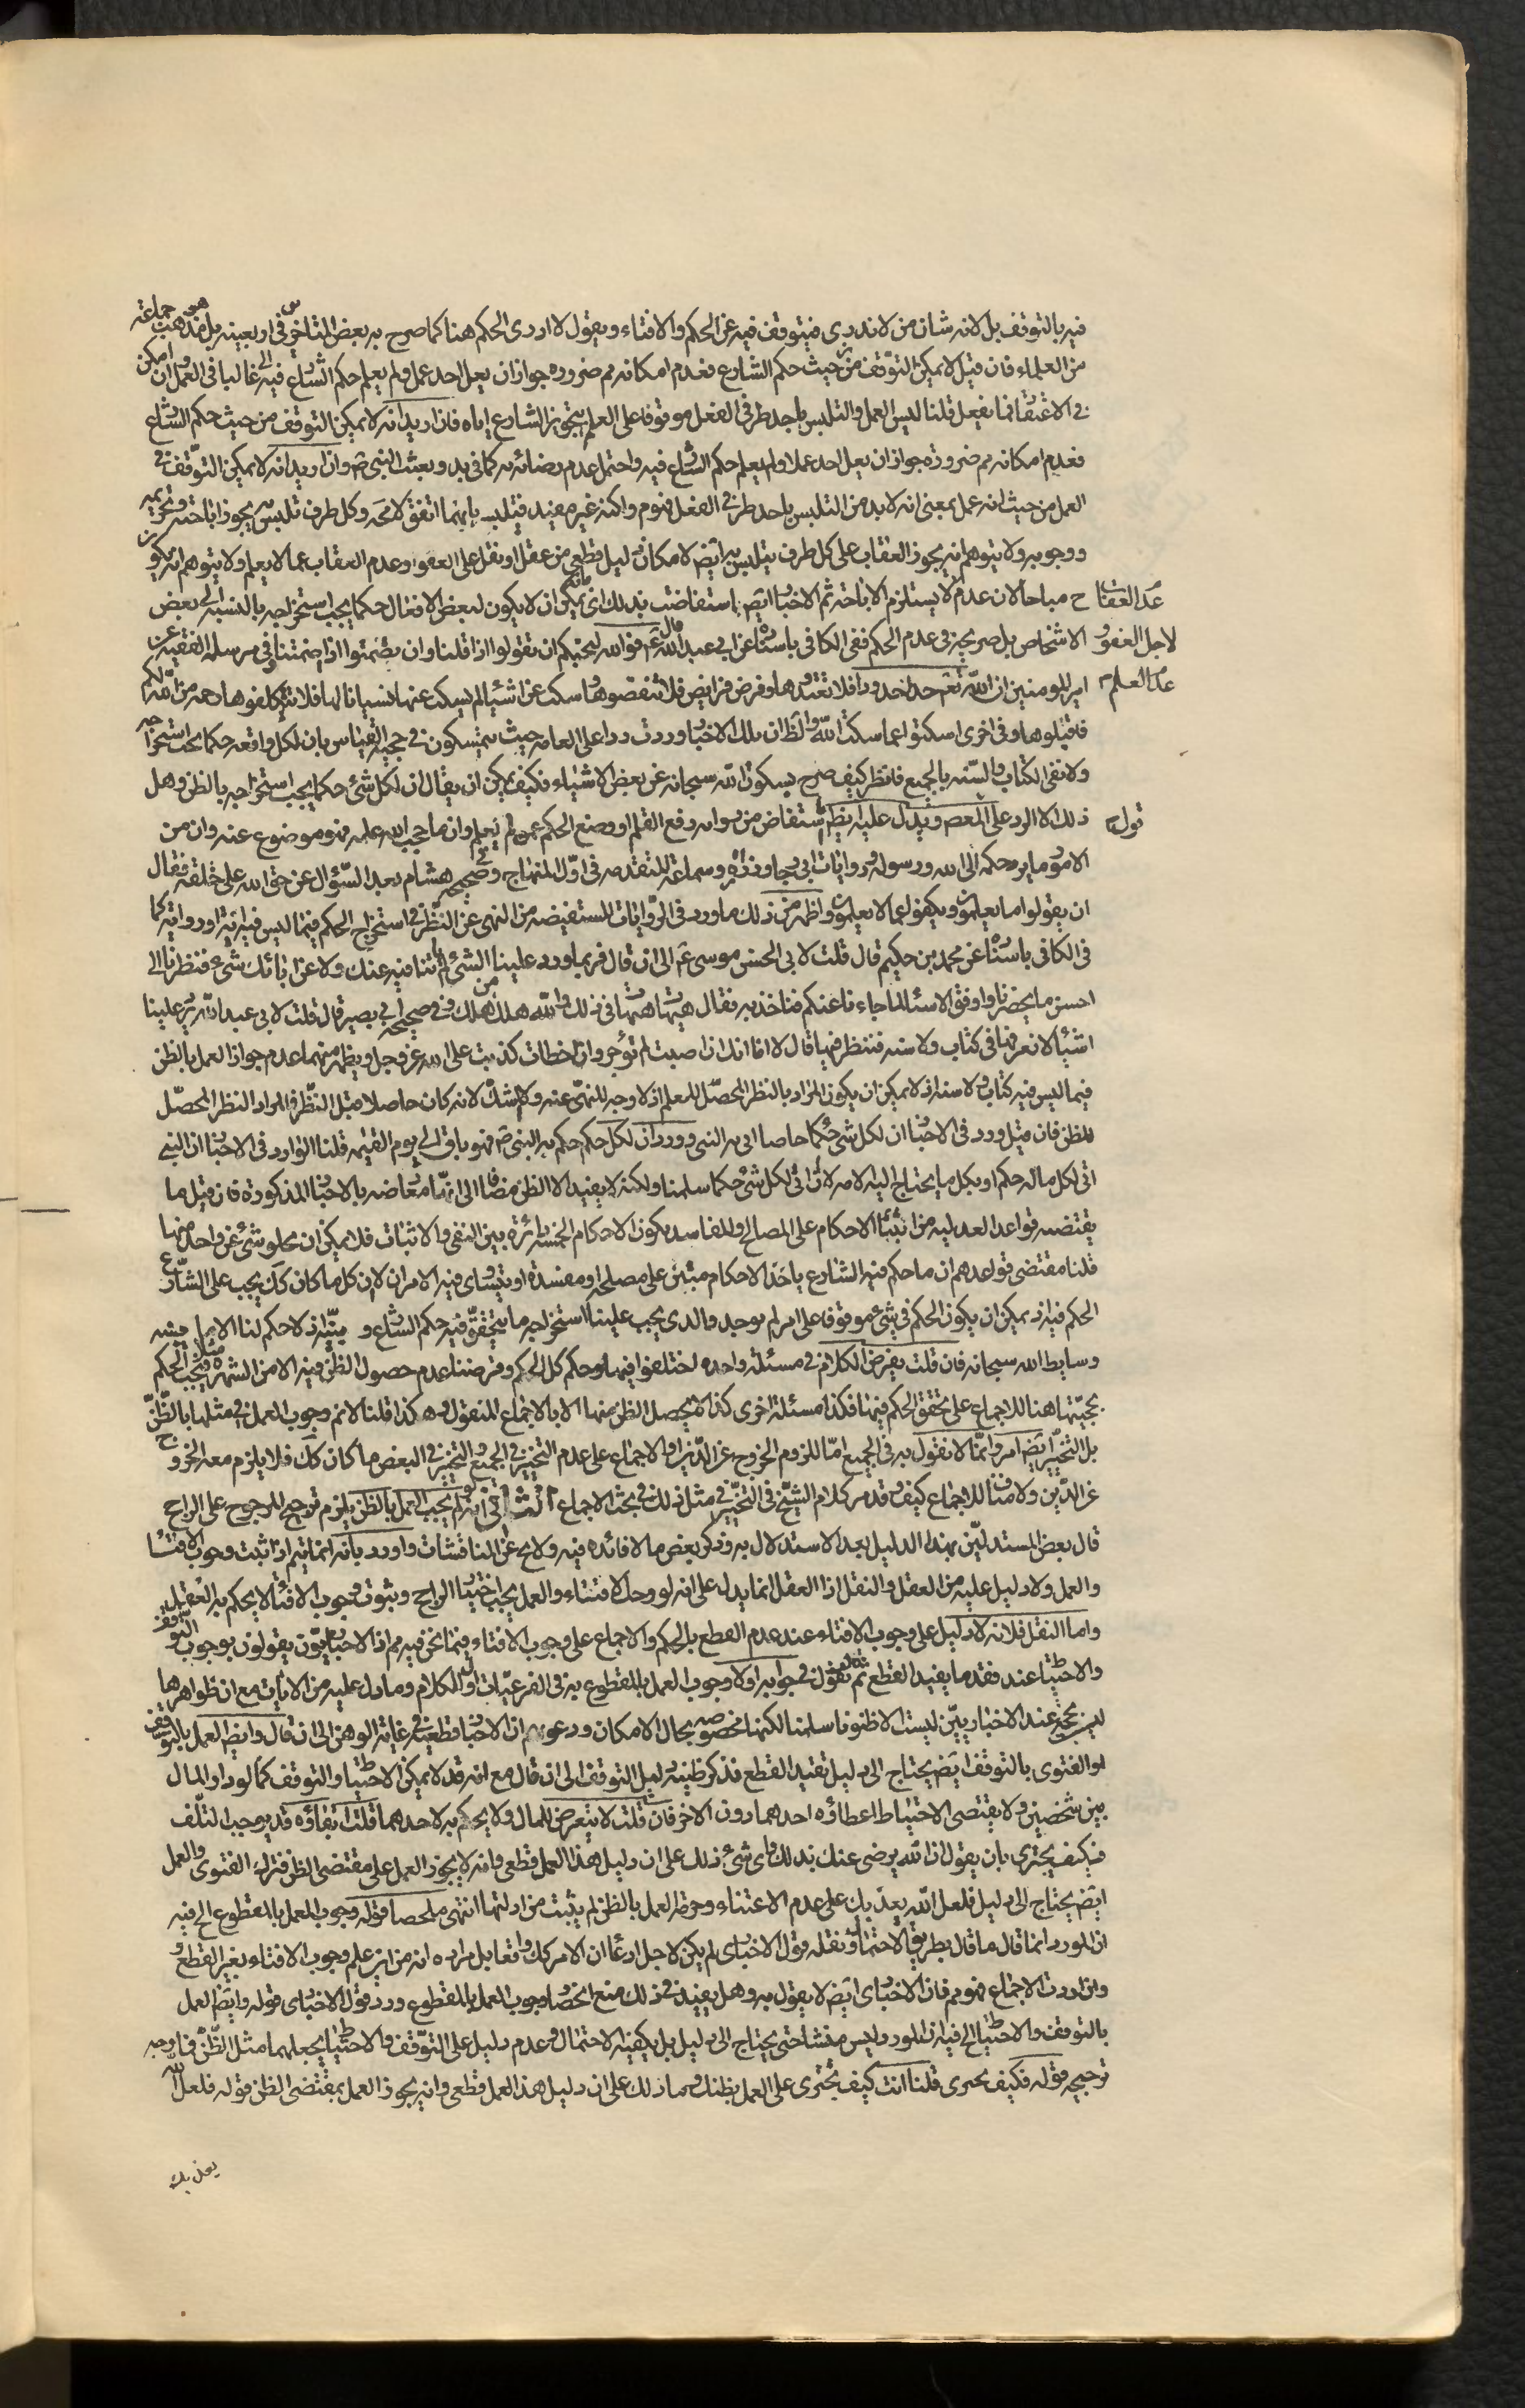 فيه بالتوقف بل لانه شان من لا يدرى فيتوقف فيه عن الحكم والافتاء ويقول لا ادرى الحكم هنا كما صرح به بعض المتاخرين فى اربعينه بل هو مذهب جماعة
من العلماء فان قيل لا يمكن التوقف من حيث حكم الشارع فعدم امكانه مم ضرورة جواز ان يعمل احد عملا ولم يعلم حكم الشارع فيه غالبا فى العمل وان امكن
فى الاعتقاد فما يفعل قلنا ليس العمل والتلبس باحد طرفى الفعل موقوفا على العلم بتجويز الشارع اياه فان اريد انه لا يمكن التوقف من حيث حكم الشارع
فعدم امكانه مم ضرورة جواز ان يعمل احد عملا ولم يعلم حكم الشارع فيه واحتمل عدم رضائه به كما فى بدو بعثة النبى ص وان اريد انه لا يمكن التوقف فى
العمل من حيث انه عمل بمعنى انه لا بد من التلبس باحد طرفى الفعل فهو م ولكنه غير مفيد فيتلبس بايهما اتفق لا محه وكل طرف تلبس به يجوز اباحته وتحريمه
ووجوبه ولا يتوهم انه يجوز العقاب على كل طرف يتلبس به ايض لامكان دليل قطعى من عقل او نقل على العفو وعدم العقاب عما لا يعلم ولا يتوهم انه يكون
ح مباحا لان عدم العقاب لا يستلزم الاباحة ثم الاخبار ايض استفاضت بذلك اى بانه يمكن ان لا يكون لبعض الافعال حكما يجب استخراجه بالنسبة الى بعض
عدم العقاب
الاشخاص بل صريحة فى عدم الحكم ففى الكافى باسناده عن ابى عبد الله ع قال فو الله لنحبكم ان تقولوا اذا قلنا وان تصمتوا اذا صمتنا وفى مرسلة الفقيه عن
لاجل العفو
امير المومنين ان الله تع حد حدودا فلا تعتدوها وفرض فرايض فلا تنقصوها وسكت عن اشياء لم يسكت عنها نسيانا لها فلا تتكلفوها رحمة من الله لكم
عدم العلم م
فاقبلوها وفى اخرى اسكتوا عما سكت الله والظ ان تلك الاخبار وردت ردا على العامه حيث يتمسكون فى حجية القياس بان لكل واقعه حكما يجب استخراجه
ولا نفى الكتاب والسنه بالجميع فانظر كيف صرح بسكوت الله سبحانه عن بعض الاشياء فكيف يمكن ان يقال ان لكل شئ حكما يجب استخراجه بالظن وهل
ذلك الا الرد على المعصوم ويدل عليه ايض ما استفاض من سوانه رفع القلم او وضع الحكم عمن لم يعلم وان ما حجب الله علمه فهو موضوع عنه وان من
قول ح
الامور ما يرد حكمه الى الله ورسوله وروايات ابى بجاد وزراره وسماعة المتقدمه فى اول المنهاج وفى صحيحه هشام بعد السؤال عن حق الله على خلقه فقال
ان يقولوا ما يعلمون ويكفوا عما لا يعلمون واظهر من ذلك ما ورد فى الروايات المستفيضه من النهى عن النظر فى استخراج الحكم فيما ليس فيه اية او رواية كما
فى الكافى باسناده عن محمد بن حكيم قال قلت لابى الحسن موسى ع الى ان قال فربما ورد علينا الشئ لم ياتنا فيه عنك ولا عن ابائك شئ فنظرنا الى
احسن ما يحضرنا واوفق الاشياء لما جاءنا عنكم فناخذ به فقال هيهات هيهات فى ذلك والله هلك من هلك وفى صحيحة ابى بصير قال قلت لابى عبد الله يرد علينا
اشياء لا نعرفها فى كتاب ولا سنه فننظر فيها قال لا اما انك ان اصبت لم تؤجر وان اخطات كذبت على الله عز وجل ويظهر منهما عدم جواز العمل بالظن
فيما ليس فيه كتاب ولا سنه اذ لا يمكن ان يكون المراد بالنظر المحصل للعلم اذ لا وجه للنهى عنه ولا للشك لانه كان حاصلا مثل النظر فالمراد النظر المحصل
للظن فان قيل ورد فى الاخبار ان لكل شئ حكما خاصا اتى به النبى وورد ان لكل حكم حكم به النبى ص فهو باق الى يوم القيمه قلنا الوارد فى الاخبار ان النبى
اتى لكل ما له حكم او بكل ما يحتاج اليه الامه لا انه اتى لكل شئ حكما سلمنا ولكنه لا يفيد الا الظن مضافا الى انها معارضه بالاخبار المذكورة فان قيل ما
يقتضيه قواعد العدليه من ابتناء الاحكام على المصالح والمفاسد يكون الاحكام الخمسة دائرة بين النفى والاثبات فلا يمكن ان يخلو شئ عن واحد منها
قلنا مقتضى قواعدهم ان ما حكم فيه الشارع باحد الاحكام مبتن على مصلحة او مفسدة او يتساوى فيه الامران لا ان كل ما كان كك يجب على الشارع
الحكم فيه اذ يمكن ان يكون الحكم فى شئ موقوفا على امر لم يوجد والذى يجب علينا استخراجه ما يتحقق فيه حكم الشارع و بينه اذ لا حكم لنا الا ما بينه
وسايط الله سبحانه فان قلت نفرض الكلام فى مسئلة واحده اختلفوا فيها وحكم كل بحكم وفرضنا عدم حصول الظن فيه الا من الشهرة مثلا فيجب الحكم
بحجيتها هنا للاجماع على تحقق الحكم فيها فكذا مسئلة اخرى كذا لا يحصل الظن منها الا بالاجماع المنقول وهكذا قلنا لا نم وجوب العمل فى مثلها بالظن
بل التخيير ايض امر وانما لا نقول به فى الجميع اما للزوم الخروج عن الدين او الاجماع على عدم التخيير فى الجميع والتخيير فى البعض ما كان كك فلا يلزم معه الخروج
عن الدين ولا مناف للاجماع كيف وقد مر كلام الشيخ فى التخيير فى مثل ذلك فى بحث الاجماع الثانى انه لو لم يجب العمل بالظن يلزم ترجيح المرجوح على الراجح
قال بعض المستدلين بهذا الدليل بعد الاستدلال به وذكر بعض ما لا فائده فيه ولا يخ عن المناقشات واورد بانه انما يتم اذا ثبت وجوب الافتاء
والعمل ولا دليل عليه من العقل والنقل اذا العقل انما يدل على انه لو وجب الافتاء والعمل يجب اختيار الراجح وثبوت وجوب الافتاء لا يحكم به العقل
واما النقل فلانه لا دليل على وجوب الافتاء عند عدم القطع بالحكم والاجماع على وجوب الافتاء فيما نحن فيه مم اذ الاخباريون يقولون بوجوب التوقف
والاحتياط عند فقد ما يفيد القطع ثم قال نقول فى جوابه اولا وجوب العمل بالمقطوع به فى الفرعيات اول الكلام وما دل عليه من الايات مع ان ظواهرها
ليس بحجة عند الاخباريين ليست الا ظنونا سلمنا لكنها مخصوصه بحال الامكان ودعويهم ان الاخبار قطعية فى غاية الوهن الى ان قال وايض العمل بالتوقف
او الفتوى بالتوقف ايض يحتاج الى دليل يفيد القطع فذكر ظنيه دليل التوقف الى ان قال مع انه قد لا يمكن الاحتياط والتوقف كما لو دار المال
بين شخصين ولا يقتضى الاحتياط اعطاؤه احدهما دون الاخر فان قلت لا يتعرض للمال ولا يحكم به لاحدهما قلت ابقاؤه قد يوجب التلف
فكيف يجترى بان يقول ان الله يرضى عنك بذلك واى شئ ذلك على ان دليل هذا العمل قطعى وانه لا يجوز العمل على مقتضى الظن فترك الفتوى والعمل
ايض يحتاج الى دليل فلعل الله يعذبك على عدم الاعتناء وحرمة العمل بالظن لم يثبت من ادلتها انتهى ملخصا قوله وجوب العمل بالمقطوع الخ فيه
ان المورد انما قال ما قال بطريق الاحتمال ونقله قول الاخبارى لم يكن لاجل ادعاء ان الامر كك واقعا بل مراده انه من اين علم وجوب الافتاء بغير القطع
وان اردت الاجماع فهو مم فان الاخبارى ايض لا يقول به وهل يفيد فى ذلك منع انحصار وجوب العمل بالمقطوع ورد قول الاخبارى قوله وايض العمل
بالتوقف والاحتياط الخ فيه ان المورد ليس منشاء حتى يحتاج الى دليل بل يكفيه الاحتمال وعدم دليل على التوقف والاحتياط يجعلهما مثل الظن فما وجه
ترجيحه قوله فكيف يجترى قلنا انت كيف تجترى على العمل بظنك وما ذلك على ان دليل هذا العمل قطعى وانه يجوز العمل بمقتضى الظن قوله فلعل الله
يعذبك